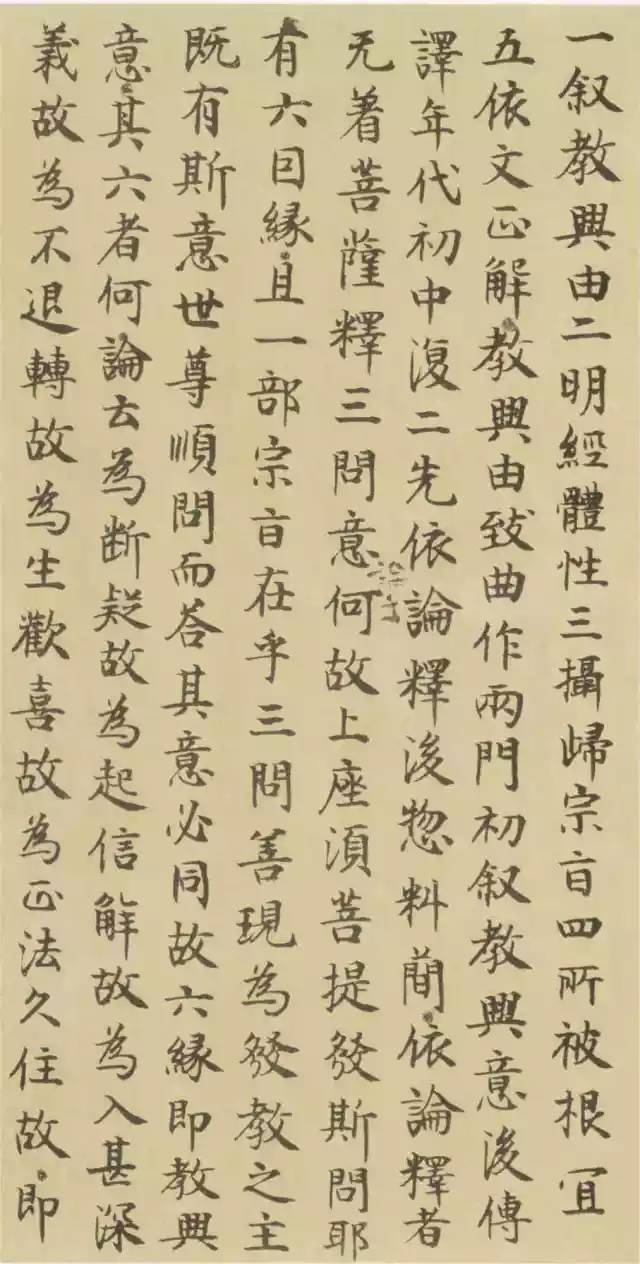 一叙教興由二明經體性三攝歸宗旨四所被根冝
五依文正解教興由致曲作兩門初叙教興意後傳
譯年代初中復二先依論釋後惣料蕳依論釋者
无着菩薩釋三問意何故上座湏菩提發斯問耶
有六因縁且一部宗旨在乎三問善現為發教之主
既有斯意世尊順問而荅其意必同故六縁即教興
意其六者何論云為断疑故為起信解故為入甚深
義故為不退轉故為生歡喜故為正法久住故即